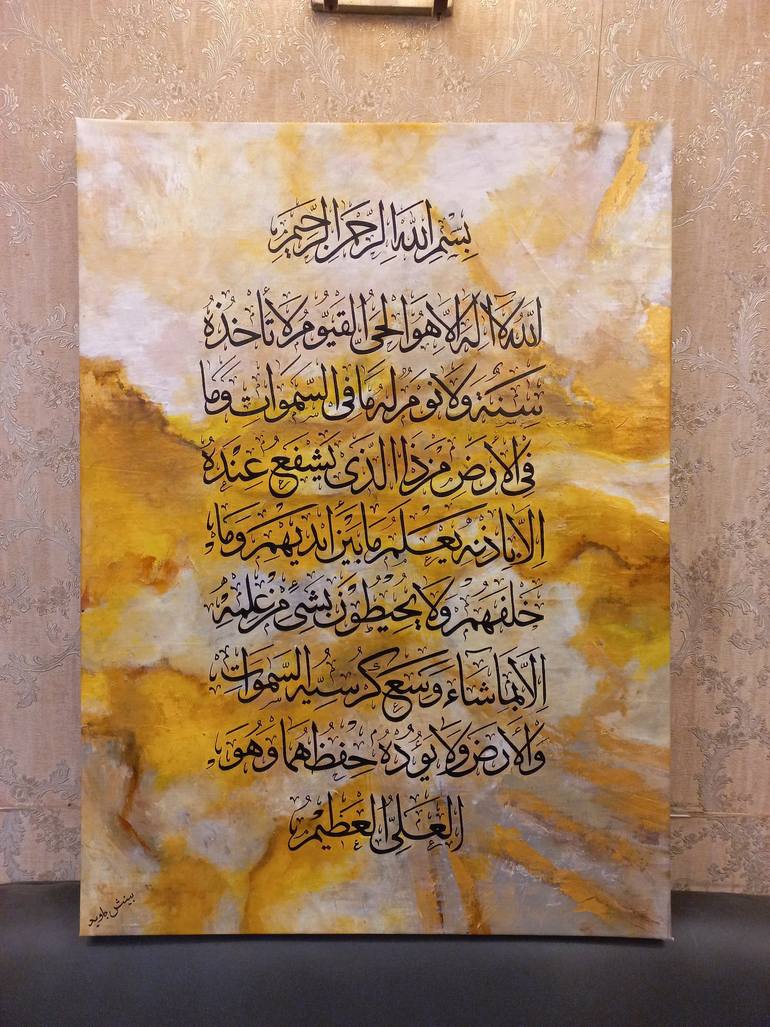 بِسْمِ اللهِ الرَّحْمٰنِ الرَّحِيْمِ
اَللهُ لَآ اِلٰهَ اِلَّا هُوَ الْحَيُّ الْقَيُّوْمُ لَا تَأْخُذُهٗ
سِنَةٌ وَّلَا نَوْمٌ لَهٗ مَا فِى السَّمٰوَاتِ وَمَا
فِى الْاَرْضِ مَنْ ذَا الَّذِىْ يَشْفَعُ عِنْدَهٗ
اِلَّا بِاِذْنِهٖ يَعْلَمُ مَا بَيْنَ اَيْدِيْهِمْ وَمَا
خَلْفَهُمْ وَلَا يُحِيْطُوْنَ بِشَىْءٍ مِّنْ عِلْمِهٖ
اِلَّا بِمَا شَآءَ وَسِعَ كُرْسِيُّهُ السَّمٰوَاتِ
وَالْاَرْضَ وَلَا يَؤُدُهٗ حِفْظُهُمَا وَهُوَ
الْعَلِىُّ الْعَظِيْمُ
بینش جاوید